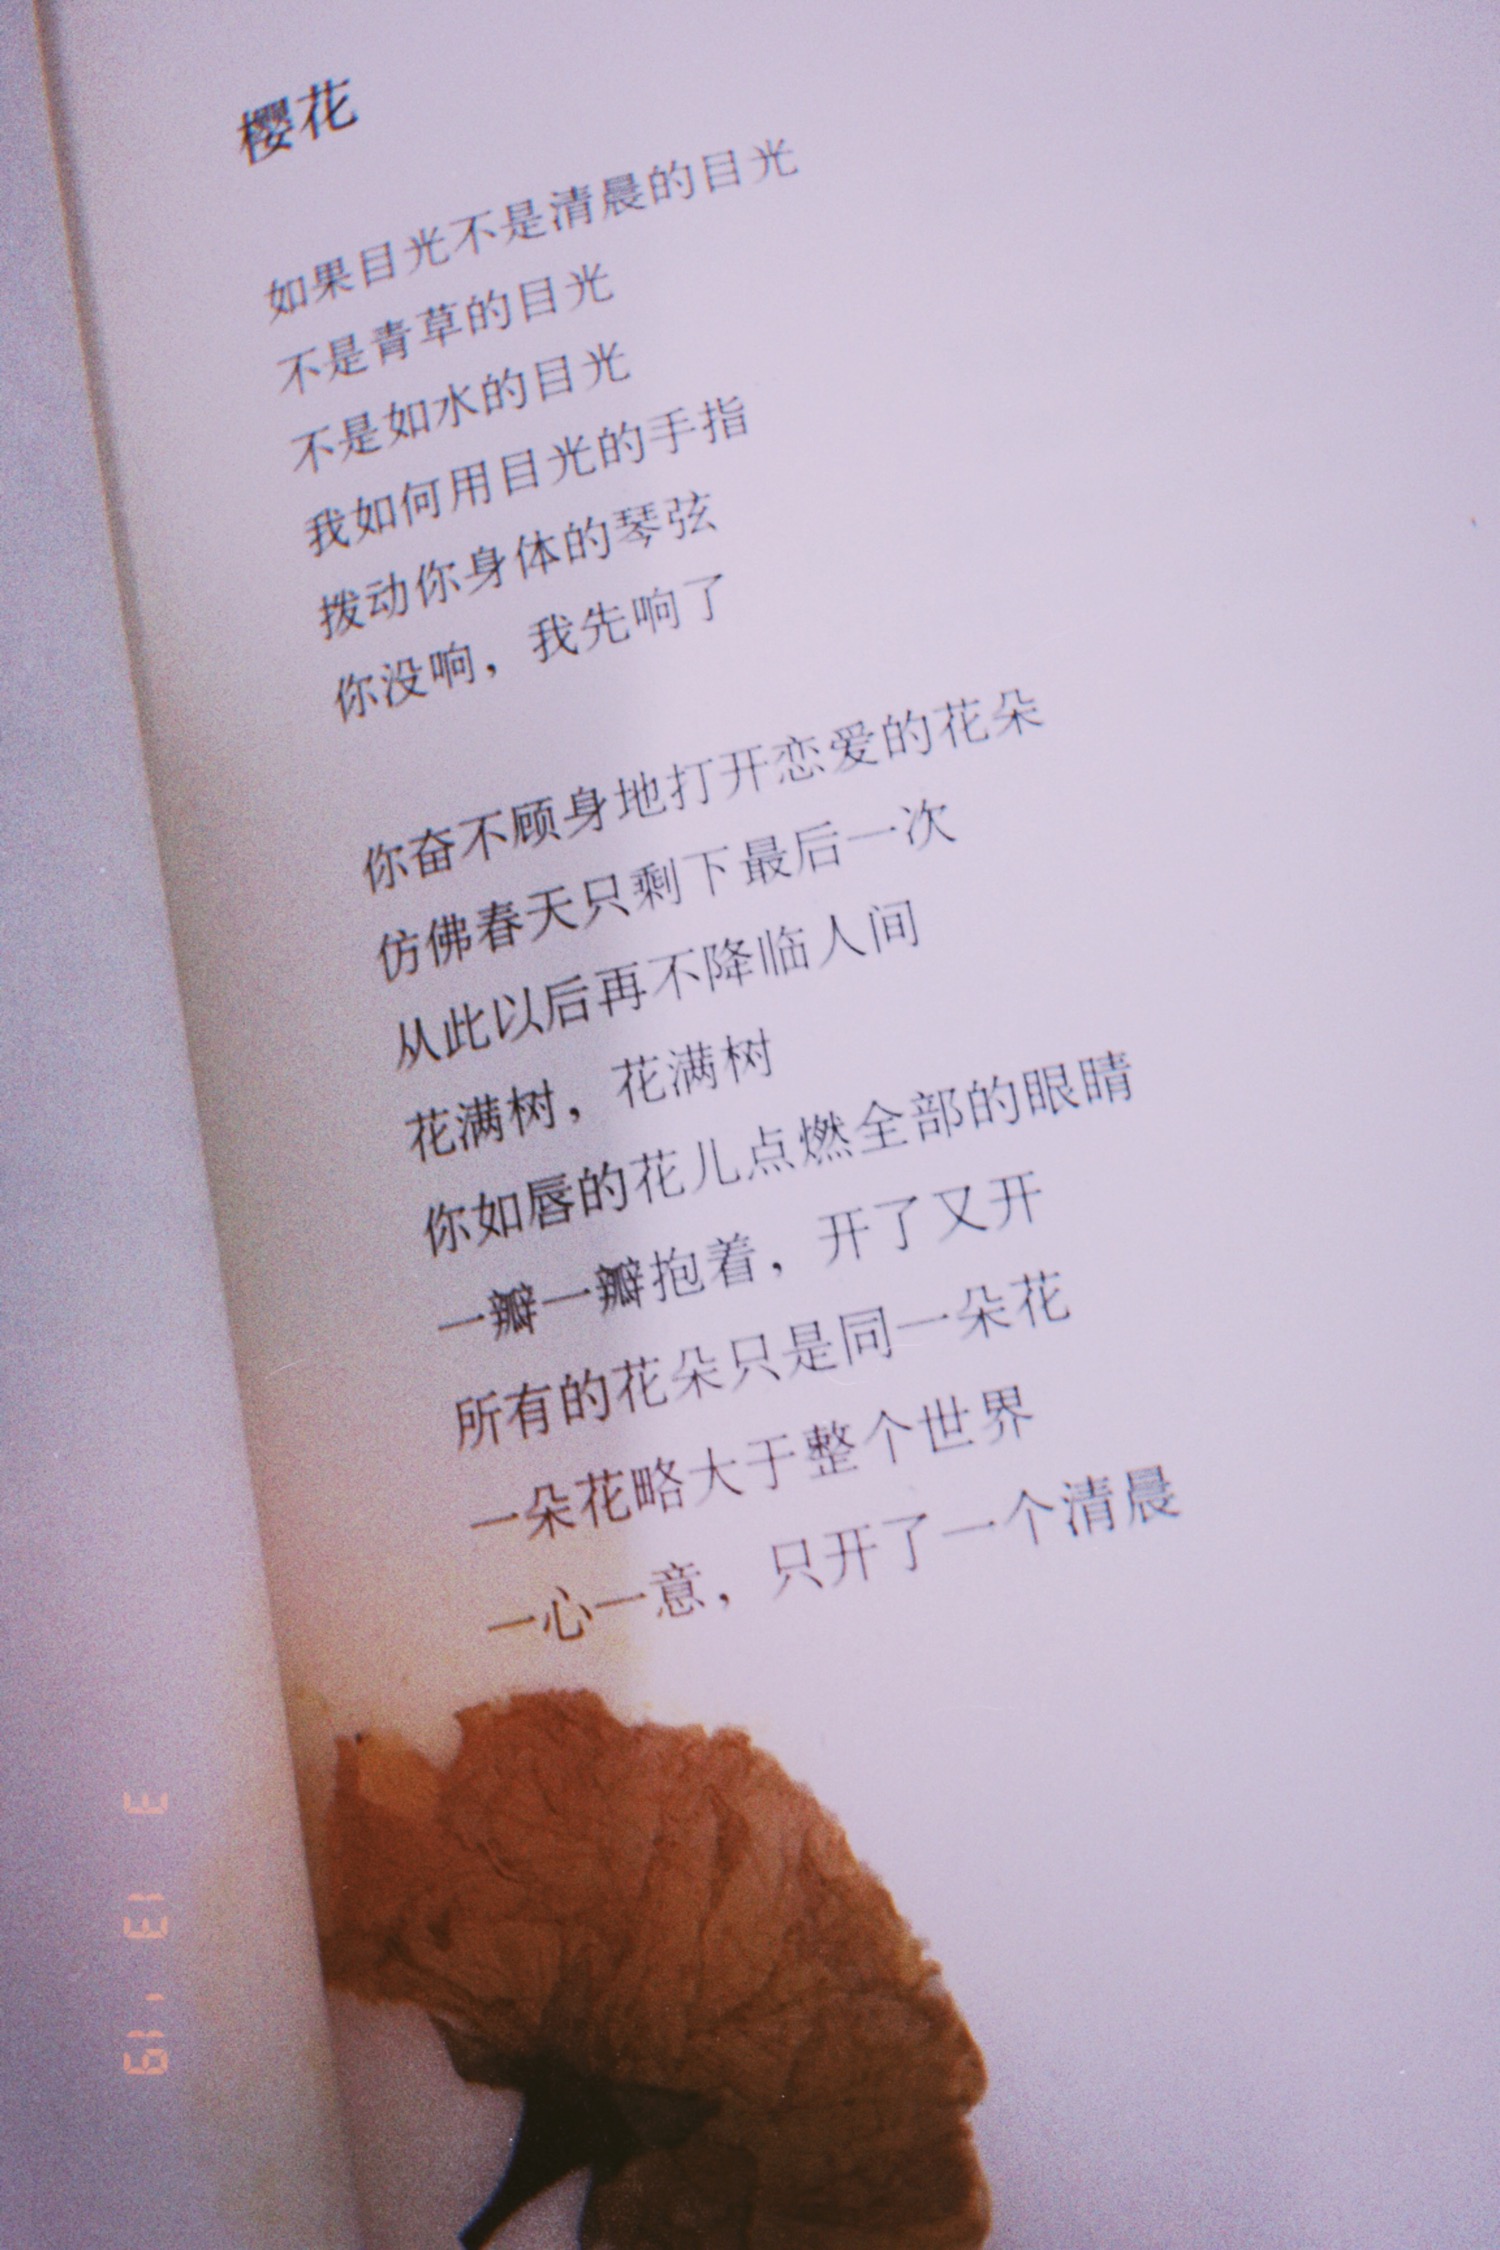 樱花
如果目光不是清晨的目光
不是青草的目光
不是如水的目光
我如何用目光的手指
拨动你身体的琴弦
你没响，我先响了
你奋不顾身地打开恋爱的花朵
仿佛春天只剩下最后一次
从此以后再不降临人间
花满树，花满树
你如唇的花儿点燃全部的眼睛
一瓣一瓣抱着，开了又开
所有的花朵只是同一朵花
一朵花略大于整个世界
一心一意，只开了一个清晨
3 13 '19